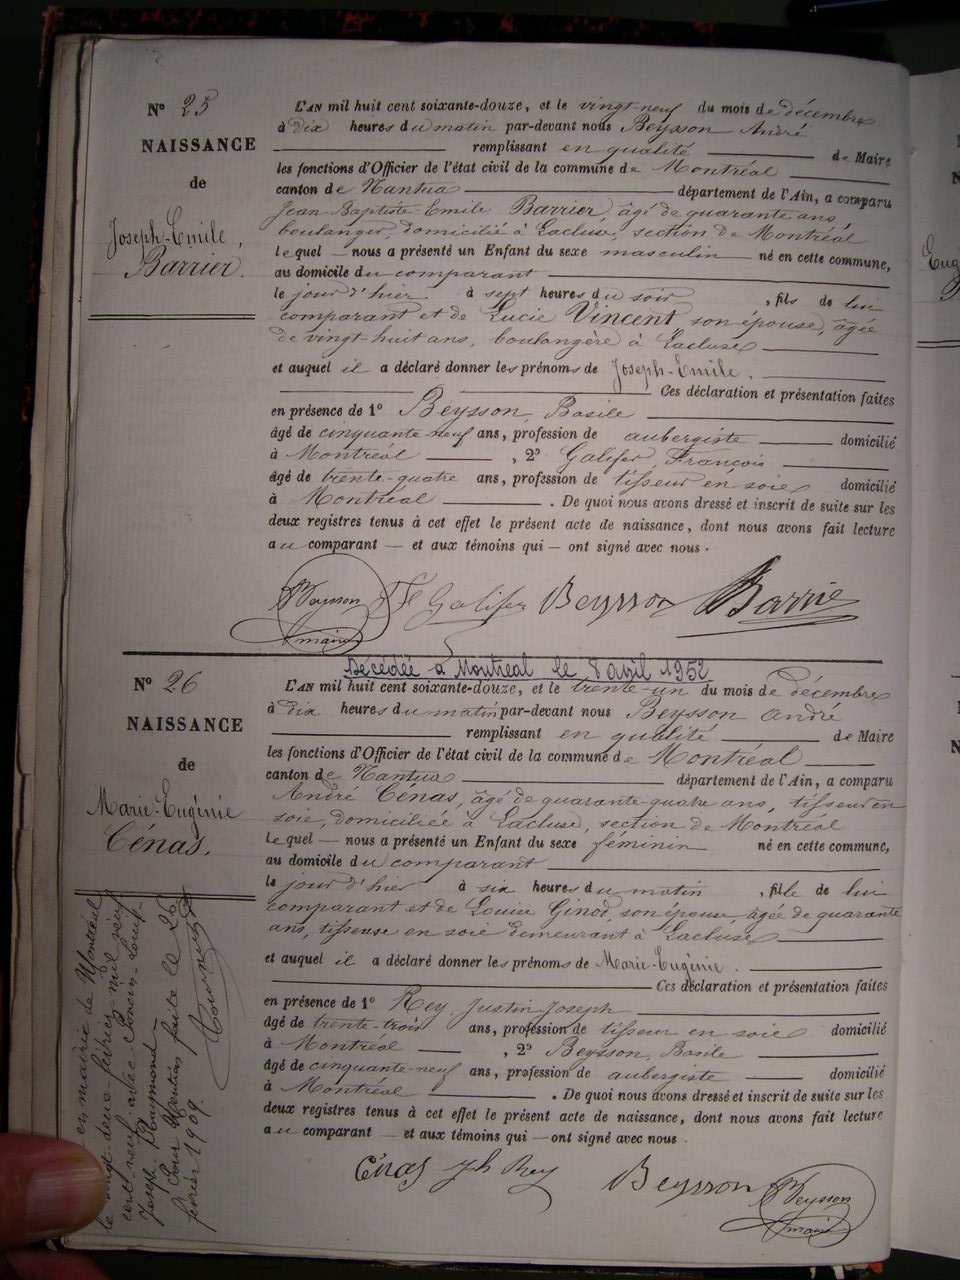 Nº 25
NAISSANCE
de
Joseph-Emile,
Barrier.
L'AN mil huit cent soixante-douze, et le vingt-neuf du mois de décembre
à dix heures du matin par-devant nous Beysson André
remplissant en qualité de Maire
les fonctions d'Officier de l'état civil de la commune de Montréal
canton de Nantua département de l'Ain, a comparu
Jean-Baptiste Emile Barrier, âgé de quarante ans,
boulanger, domicilié à Lacluse, section de Montréal
lequel — nous a présenté un Enfant du sexe masculin né en cette commune,
au domicile du comparant
le jour d'hier à sept heures du soir, fils de lui
comparant et de Lucie Vincent son épouse, âgée
de vingt-huit ans, boulangère à Lacluse
et auquel il a déclaré donner les prénoms de Joseph-Emile.
Ces déclaration et présentation faites
en présence de 1º Beysson, Basile
âgé de cinquante-neuf ans, profession de aubergiste domicilié
à Montréal, 2º Galifer, François
âgé de trente-quatre ans, profession de tisseur en soie domicilié
à Montréal. De quoi nous avons dressé et inscrit de suite sur les
deux registres tenus à cet effet le présent acte de naissance, dont nous avons fait lecture
au comparant — et aux témoins qui — ont signé avec nous.
Beysson F Galifer Beysson Barrie
maire
Décédée à Montréal le 8 avril 1952
Nº 26
NAISSANCE
de
Marie-Eugénie
Cénas.
L'AN mil huit cent soixante-douze, et le trente-un du mois de décembre
à dix heures du matin par-devant nous Beysson André
remplissant en qualité de Maire
les fonctions d'Officier de l'état civil de la commune de Montréal
canton de Nantua département de l'Ain, a comparu
André Cénas, âgé de quarante-quatre ans, tisseur en
soie, domiciliée à Lacluse, section de Montréal
lequel — nous a présenté un Enfant du sexe féminin né en cette commune,
au domicile du comparant
le jour d'hier à six heures du matin, fille de lui
comparant et de Louise Ginod, son épouse, âgée de quarante
ans, tisseuse en soie demeurant à Lacluse
et auquel il a déclaré donner les prénoms de Marie-Eugénie.
Ces déclaration et présentation faites
en présence de 1º Rey, Justin Joseph
âgé de trente-trois ans, profession de tisseur en soie domicilié
à Montréal, 2º Beysson, Basile
âgé de cinquante-neuf ans, profession de aubergiste domicilié
à Montréal. De quoi nous avons dressé et inscrit de suite sur les
deux registres tenus à cet effet le présent acte de naissance, dont nous avons fait lecture
au comparant — et aux témoins qui — ont signé avec nous.
Cénas Jh Rey Beysson Beysson
maire
en mairie de Montréal
le vingt-deux février mil neuf
cent neuf avec Louis-
Joseph Raymond
Pour Mention faite le 26
février 1909.